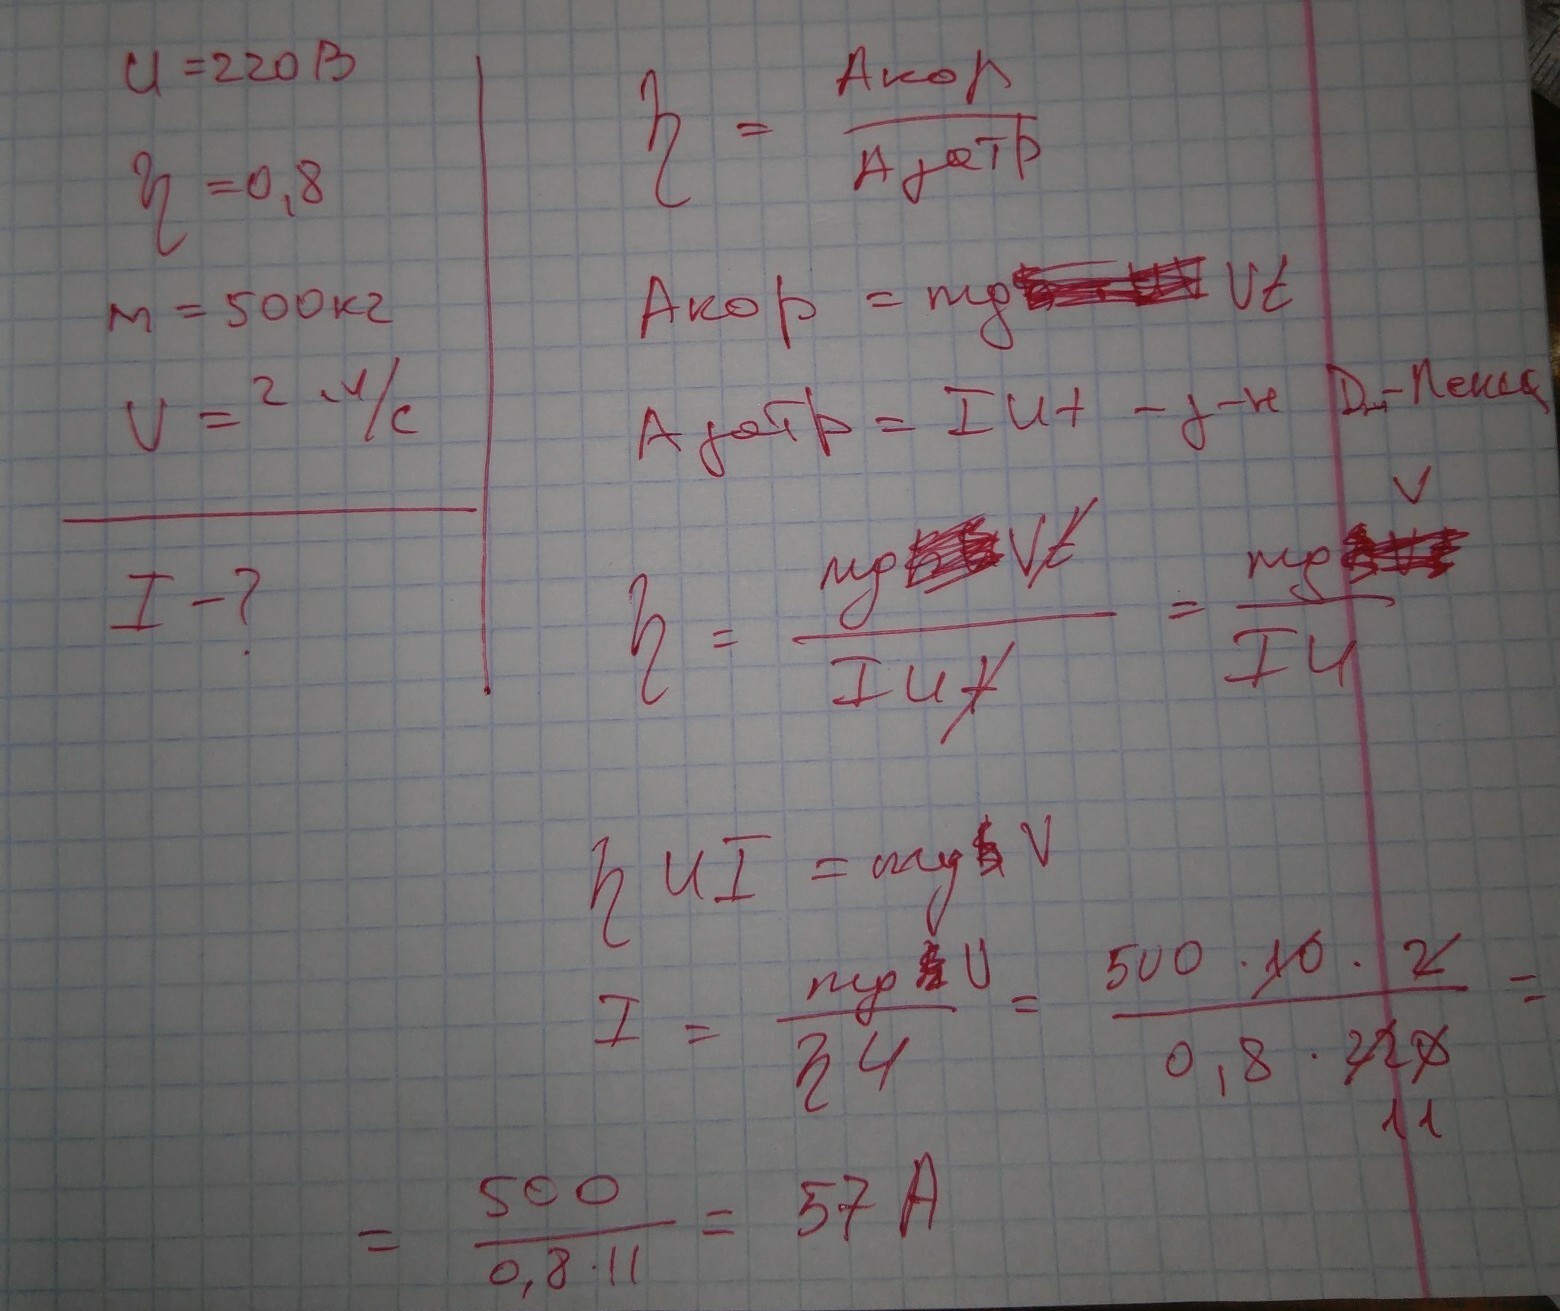 U = 220 В
η = 0,8
m = 500 кг
V = 2 м/с
I - ?
η = Aкор / Aзатр
Aкор = mg Vt
Aзатр = IUt - з-н Дж-Ленца
η = mg Vt / IUt = mg V / IU
η UI = mg V
I = mg V / η U = 500 · 10 · 2 / 0,8 · 220 =
11
= 500 / 0,8 · 11 = 57 A